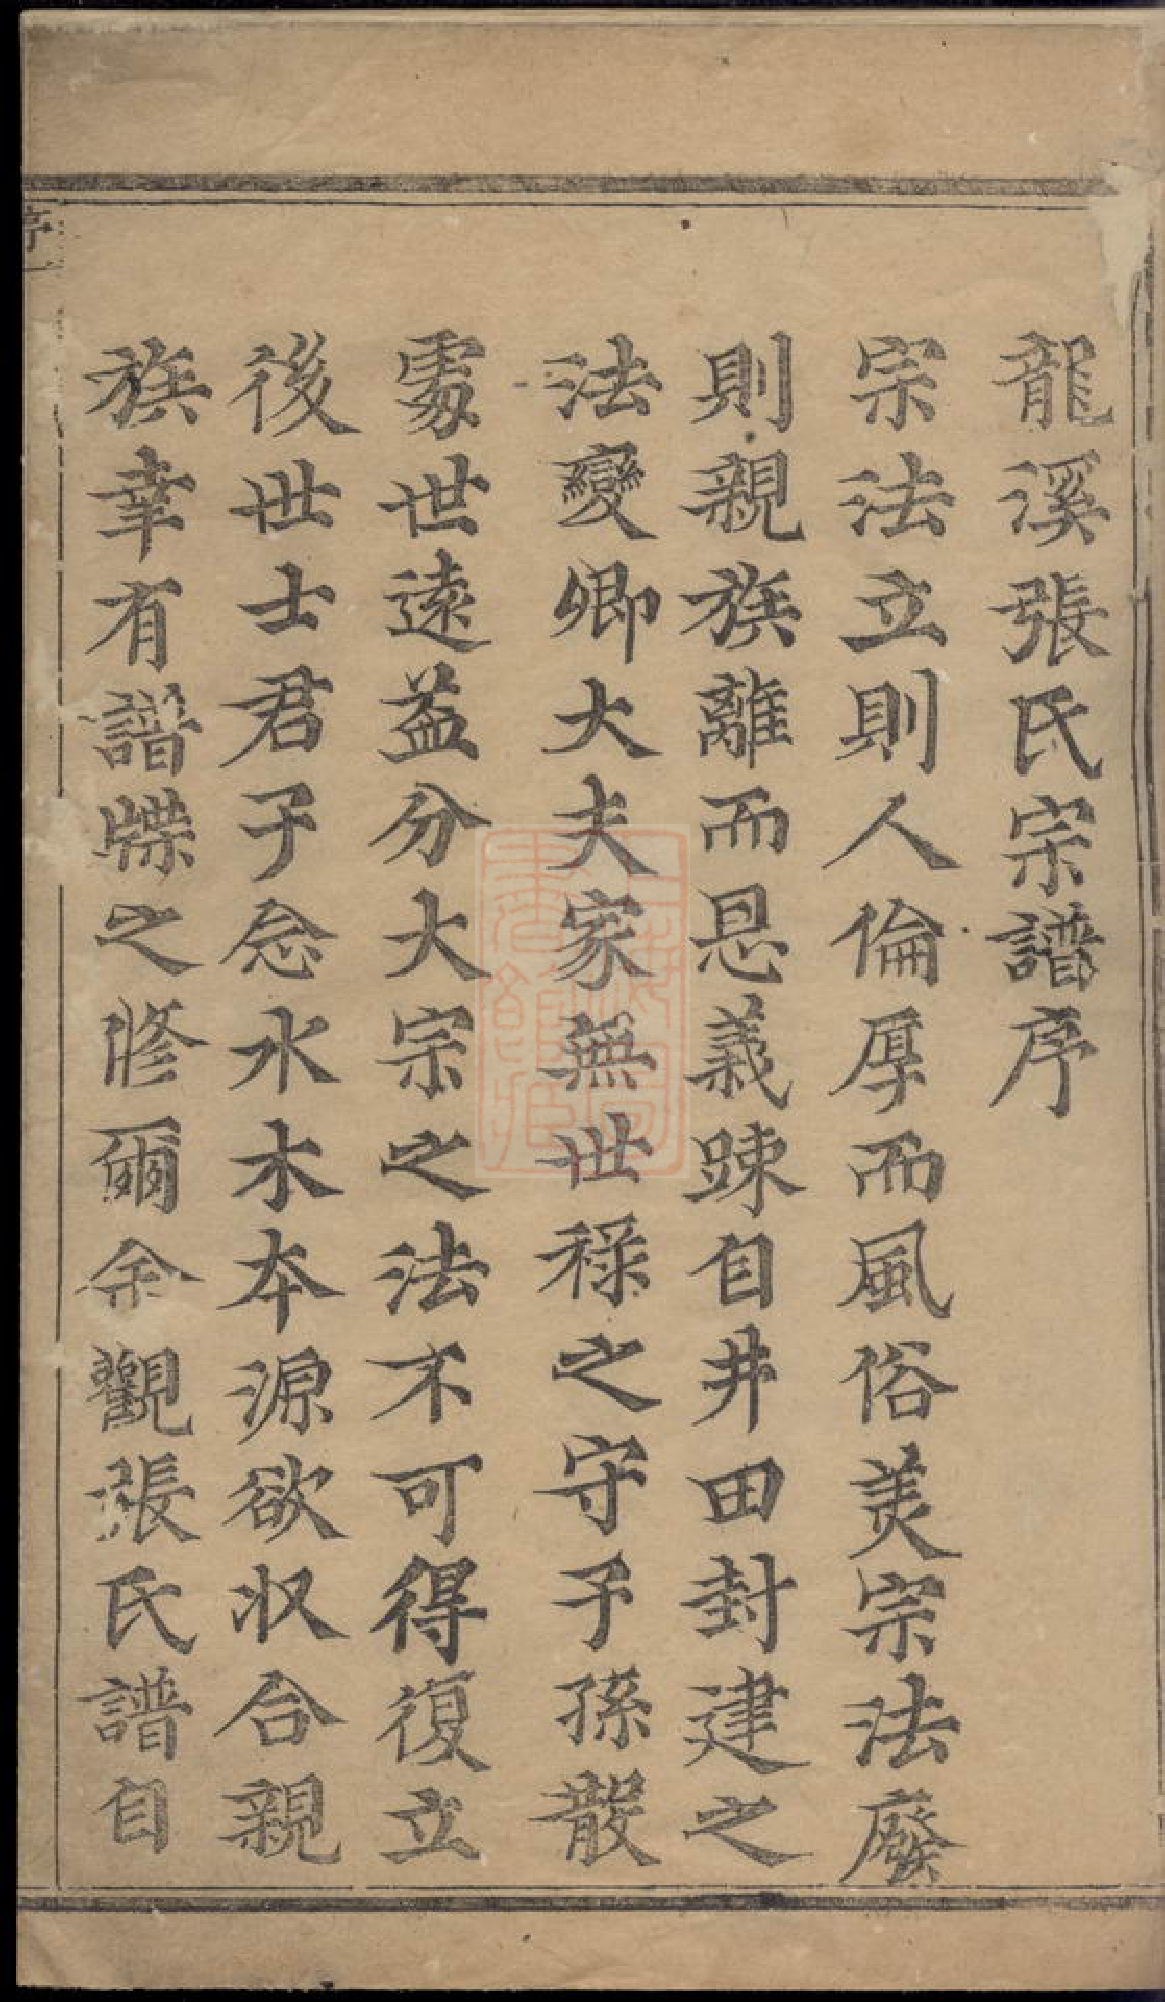 龍溪張氏宗譜序
宗法立則人倫厚而風俗美宗法廢
則親族離而恩義踈自井田封建之
法變卿大夫家無世祿之守子孫散
處世遠益分大宗之法不可得復立
後世士君子念水木本源欲收合親
族幸有譜牒之修爾余觀張氏譜自
序一
上海圖書館藏